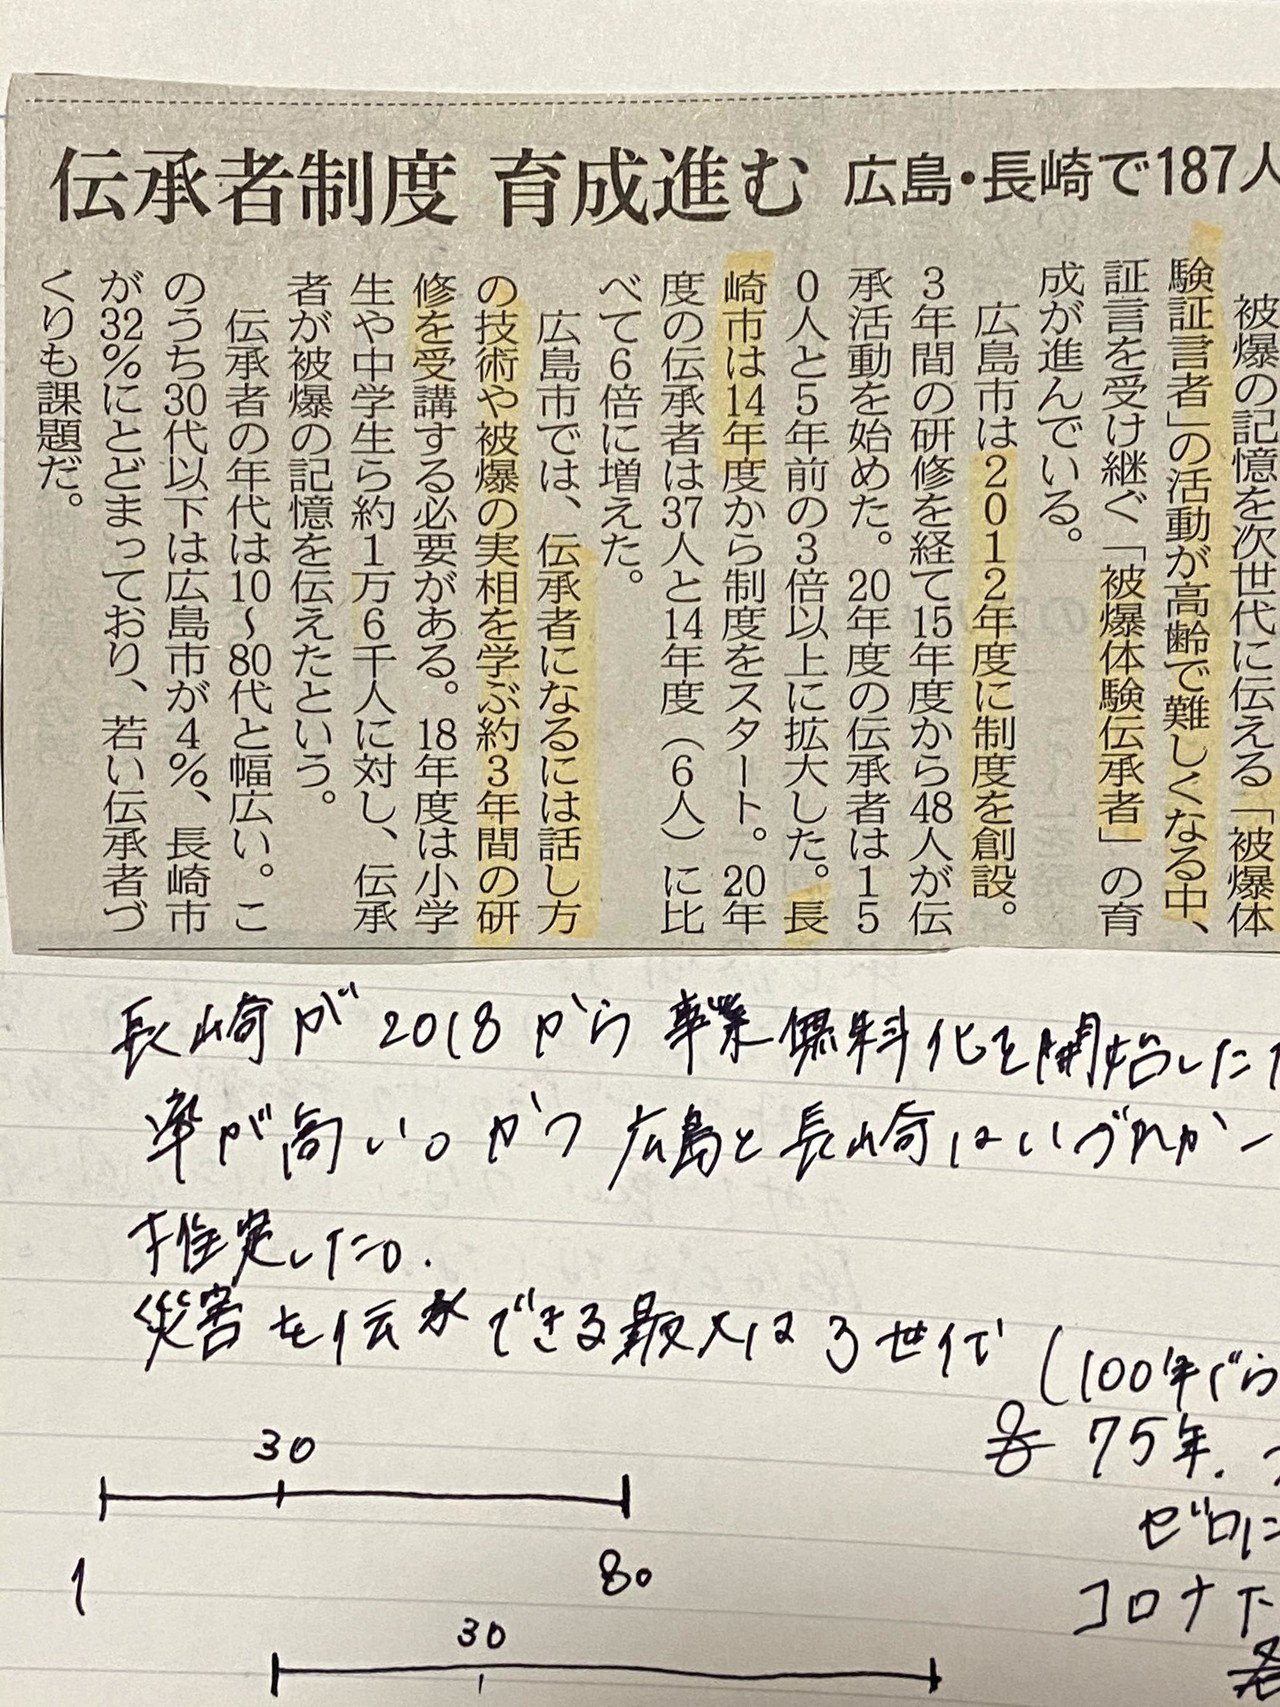 伝承者制度 育成進む 広島・長崎で187人
被爆の記憶を次世代に伝える「被爆体
験証言者」の活動が高齢で難しくなる中、
証言を受け継ぐ「被爆体験伝承者」の育
成が進んでいる。
広島市は2012年度に制度を創設。
3年間の研修を経て15年度から48人が伝
承活動を始めた。20年度の伝承者は15
0人と5年前の3倍以上に拡大した。長
崎市は14年度から制度をスタート。20年
度の伝承者は37人と14年度（6人）に比
べて6倍に増えた。
広島市では、伝承者になるには話し方
の技術や被爆の実相を学ぶ約3年間の研
修を受講する必要がある。18年度は小学
生や中学生ら約1万6千人に対し、伝承
者が被爆の記憶を伝えたという。
伝承者の年代は10〜80代と幅広い。こ
のうち30代以下は広島市が4%、長崎市
が32%にとどまっており、若い伝承者づ
くりも課題だ。
長崎が2018から事業無料化を開始した
率が高い。かつ広島と長崎はいづれか
推定した。
災害を伝承できる最大は3世代
(100年ぐら
75年.
ゼロに
コロナ下
30
1 80
30